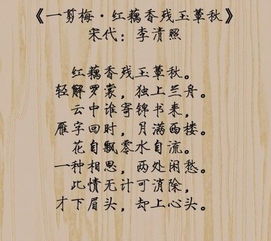 《一剪梅·红藕香残玉簟秋》
宋代：李清照
红藕香残玉簟秋。
轻解罗裳，独上兰舟。
云中谁寄锦书来，
雁字回时，月满西楼。
花自飘零水自流。
一种相思，两处闲愁。
此情无计可消除，
才下眉头，却上心头。